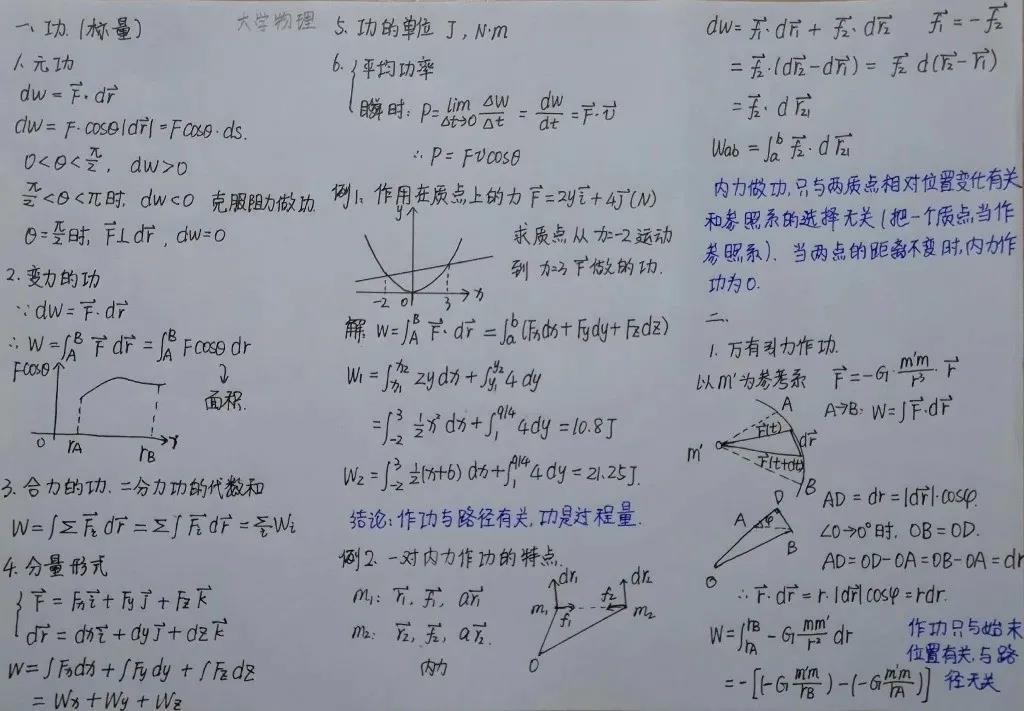 大学物理
一、功.(标量)
1.元功
dw=F⃗·dr⃗
dw=F·cosθ|dr⃗|=Fcosθ·ds.
0<θ<π/2, dw>0
π/2<θ<π时, dw<0 克服阻力做功.
θ=π/2时, F⃗⊥dr⃗, dw=0
2.变力的功
∵dw=F⃗·dr⃗
∴W=∫_A^B F⃗ dr⃗=∫_A^B Fcosθ dr
↓
面积.
Fcosθ
0 rA rB r
3.合力的功.=分力功的代数和
W=∫ΣF⃗i dr⃗=Σ∫F⃗i dr⃗=Σ_i Wi
4.分量形式
F⃗=Fxi⃗+Fyj⃗+Fzk⃗
dr⃗=dxi⃗+dyj⃗+dzk⃗
W=∫Fxdx+∫Fydy+∫Fzdz
=Wx+Wy+Wz
5.功的单位 J, N·m
6.平均功率
瞬时: P=lim_{Δt→0} ΔW/Δt=dw/dt=F⃗·v⃗
∴P=Fvcosθ
例1.作用在质点上的力 F⃗=2yi⃗+4j⃗(N)
求质点从x=-2运动
到x=3 F⃗做的功.
y
-2 0 3 x
解: W=∫_A^B F⃗·dr⃗=∫_a^b(Fxdx+Fydy+Fzdz)
W1=∫_{x1}^{x2} 2ydx+∫_{y1}^{y2} 4dy
=∫_{-2}^{3} 1/2x²dx+∫_1^{9/4} 4dy=10.8J
W2=∫_{-2}^{3} 1/2(x+6)dx+∫_1^{9/4} 4dy=21.25J.
结论:作功与路径有关,功是过程量.
例2.一对内力作功的特点.
m1: r⃗1, f⃗1, ar⃗1
m2: r⃗2, f⃗2, ar⃗2.
内力
dr1 dr2
m1 f1 f2 m2
O
dw=f⃗1·dr⃗1+f⃗2·dr⃗2 f⃗1=-f⃗2
=f⃗2·(dr⃗2-dr⃗1)=f⃗2 d(r⃗2-r⃗1)
=f⃗2·dr⃗21
Wab=∫_a^b f⃗2·dr⃗21
内力做功,只与两质点相对位置变化有关
和参照系的选择无关(把一个质点当作
参照系).当两点的距离不变时,内力作
功为0.
二、
1.万有引力作功.
以m'为参考系 F⃗=-G·m'm/r³·r⃗
A→B: W=∫F⃗·dr⃗
A
r⃗(t) dr⃗
m'
r⃗(t+dt)
B
D
A φ
B
O
AD=dr=|dr⃗|·cosφ.
∠O→0°时, OB=OD.
AD=OD-OA=OB-OA=dr
∴r⃗·dr⃗=r·|dr⃗|cosφ=rdr.
W=∫_{rA}^{rB}-G mm'/r² dr
=-[(-G m'm/rB)-(-G m'm/rA)]
作功只与始末
位置有关,与路
径无关